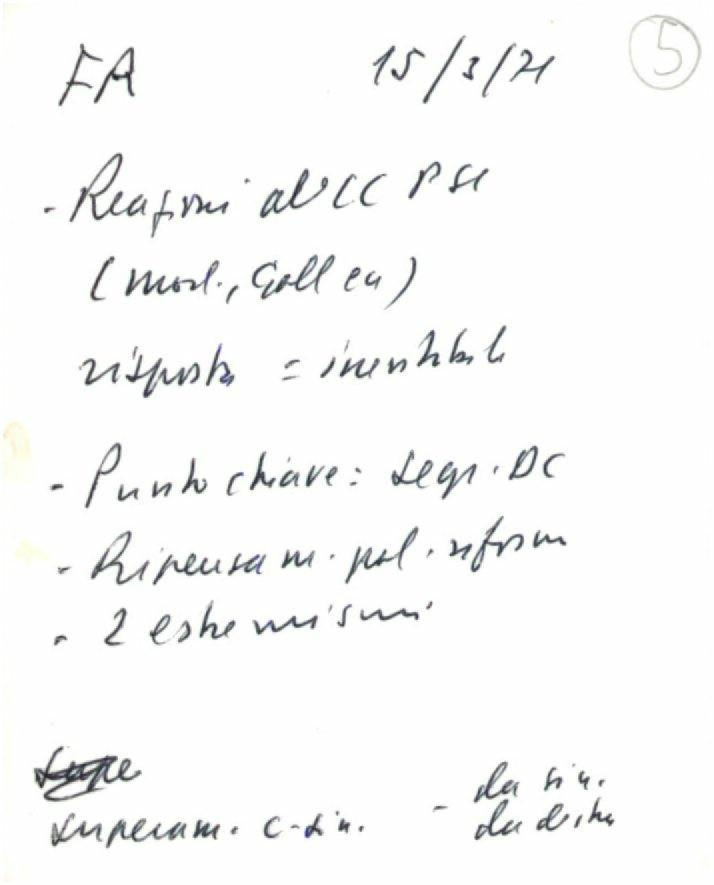 FA 15/3/71 5
- Reazioni al CC PSI
(Mod., Galloni)
risposta = inevitabile
- Punto chiave: segr. DC
- Ripensam. pol. riform
- 2 estremismi
Supe
superam. c-sin. - da sin.
da destra